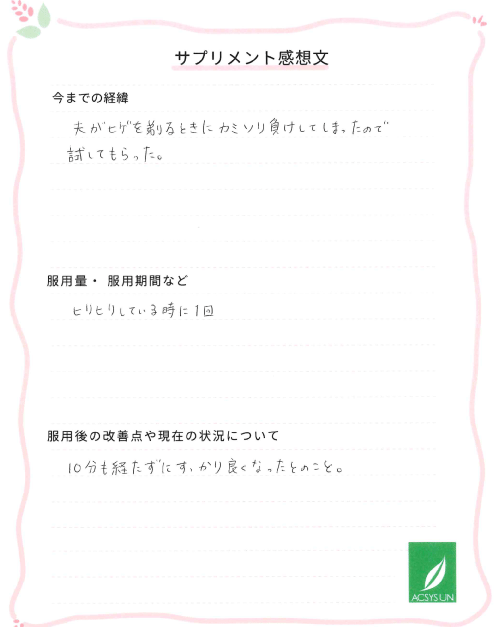 サプリメント感想文
今までの経緯
夫がヒゲを剃るときにカミソリ負けしてしまったので
試してもらった。
服用量・ 服用期間など
ヒリヒリしている時に1回
服用後の改善点や現在の状況について
10分も経たずにすっかり良くなったとのこと。
ACSYSUN